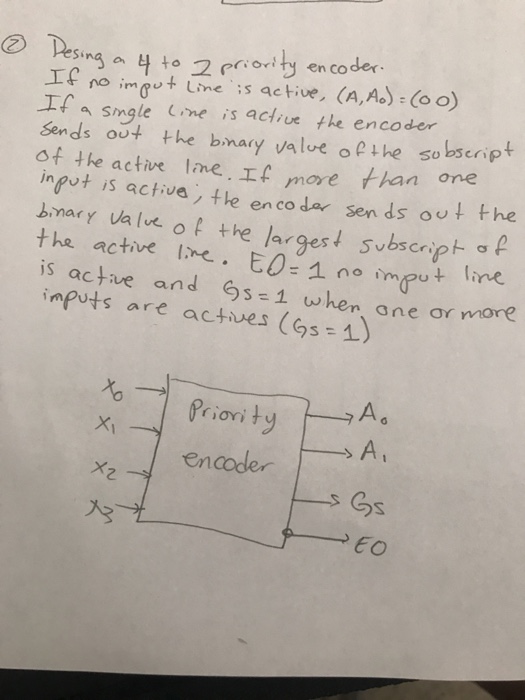 ② Desing a 4 to 2 priority encoder.
If no imput line is active, (A, A0) = (00)
If a single line is active the encoder
sends out the binary value of the subscript
of the active line. If more than one
input is active, the encoder sends out the
binary value of the largest subscript of
the active line. EO = 1 no imput line
is active and GS = 1 when one or more
imputs are actives (GS = 1)
X0
X1
X2
X3
Priority
encoder
A0
A1
GS
EO